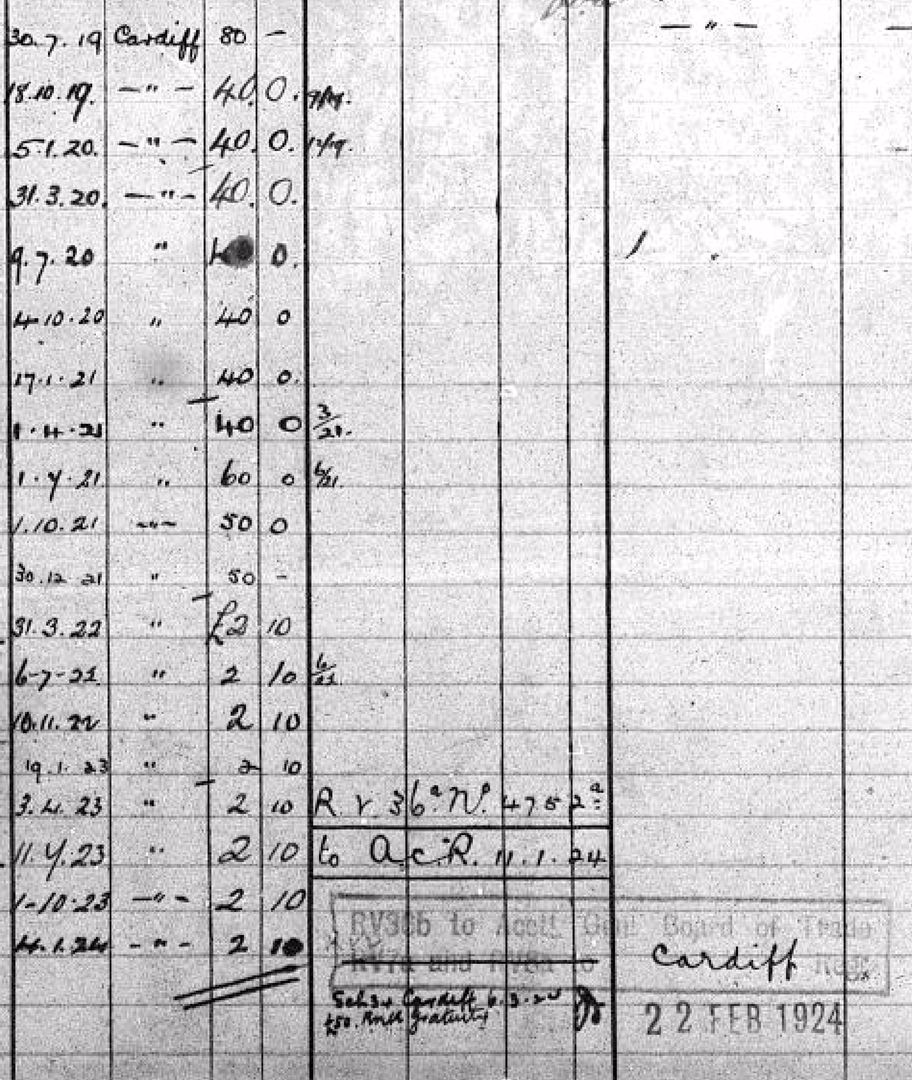 — " —
30.7.19 Cardiff 80 —
18.10.19. — " — 40. 0. 9/19.
5.1.20. — " — 40. 0. 12/19.
31.3.20. — " — 40. 0.
9.7.20 " 0.
4.10.20 " 40 0
17.1.21 " 40 0.
1.4.21 " 40 0 3/21.
1.7.21 " 60 0 6/21.
1.10.21 — " — 50 0
30.12.21 " 50 —
31.3.22 " £2 10
6-7-22 " 2 10 6/22
10.11.22 " 2 10
19.1.23 " 2 10
3.4.23 " 2 10 R.V. 36ª Nº 4752ª
11.7.23 " 2 10 to A.C.R. 11.1.24
1-10-23 — " — 2 10
RV36b to Acctt. Genl Board of Trade
4.1.24 — " — 2 10
RV7a and RV8a to Cardiff Regr.
Cardiff 6.3.24
£50. RNR Gratuity
22 FEB 1924